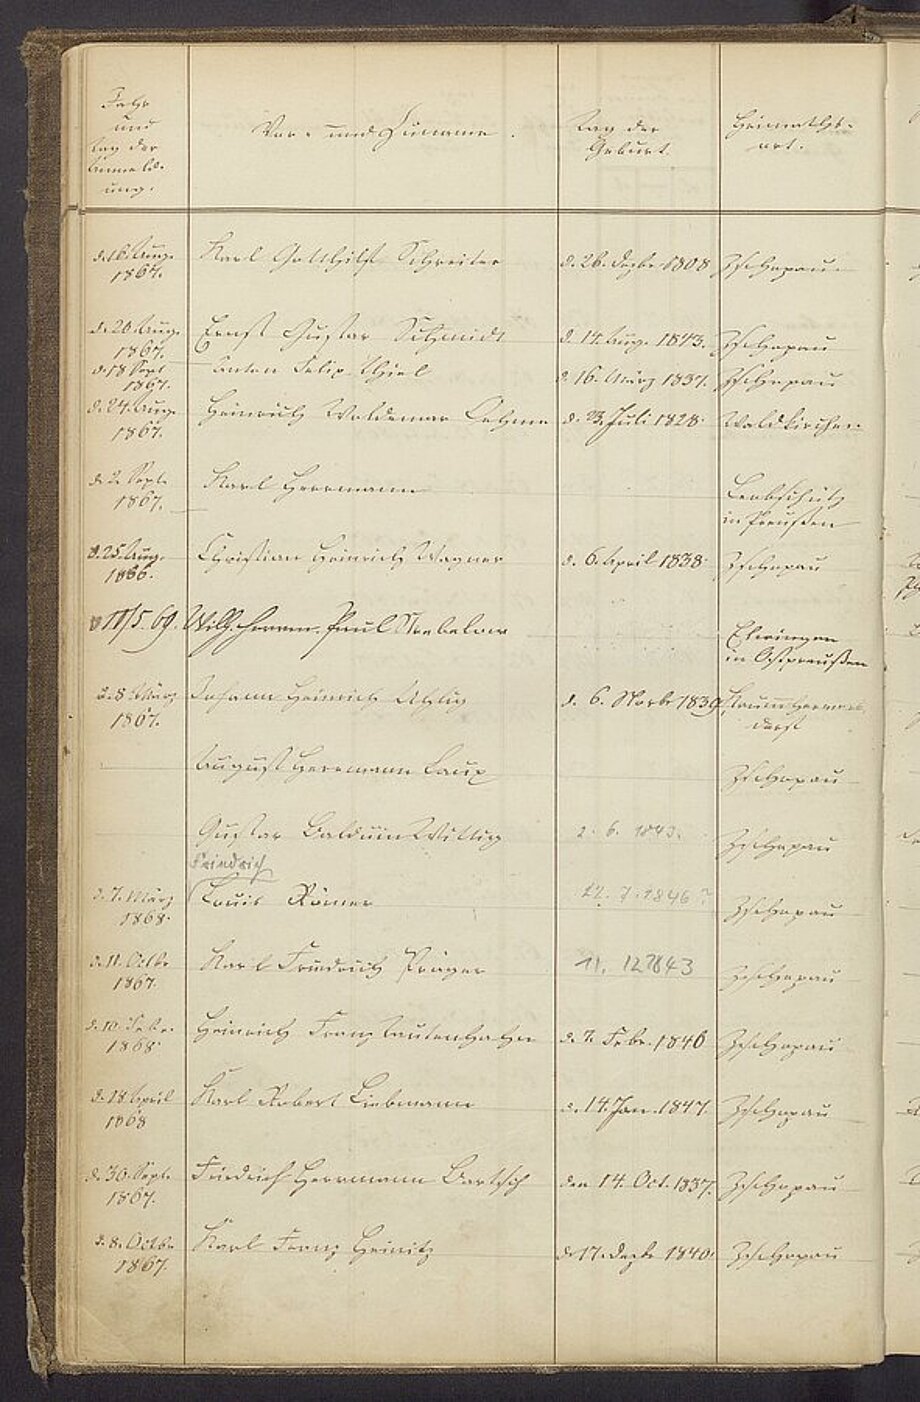 Jahr
und
Tag der
Anmeld-
ung.
Vor- und Zuname.
Tag der
Geburt.
Heimathsb-
ort.
d. 16. Aug. 1867. Karl Gotthilf Schreiter d. 26. Dezbr 1808 Zschopau
d. 20. Aug. 1867. Ernst Gustav Schmidt d. 14. Aug. 1843. Zschopau
d. 18 Sept 1867. Anton Felix Thiel d. 16. März 1837. Zschopau
d. 24. Aug. 1867. Heinrich Woldemar Oehme d. 23. Juli 1828. Waldkirchen
d. 2. Sept. 1867. Karl Herrmann Leobschütz
in Preußen
d. 25. Aug. 1866. Christian Heinrich Wagner d. 6. April 1838. Zschopau
11/5. 69. Wilh. Herm. Paul
in Ostpreußen
d. 8. März 1867. Johann Heinrich Uhlig d. 6. Novbr 1839
dorf
August Herrmann Zschopau
Gustav Balduin Wittig 2. 6. 1843. Zschopau
Friedrich
d. 7. März 1868. Louis Römer 22. 7. 1846? Zschopau
d. 11. Octbr 1867. Karl Friedrich Präger 11. 12 1843 Zschopau
d. 10. Febr. 1868. Heinrich Franz Tautenhahn d. 7. Febr. 1846 Zschopau
d. 18 April 1868 Karl Robert Liebmann d. 14. Jan. 1847. Zschopau
d. 30. Sept. 1867. Friedrich Herrmann Bartzsch den 14. Oct. 1837. Zschopau
d. 8. Octbr 1867. Karl Franz Heinitz d. 17. Dezbr 1840. Zschopau